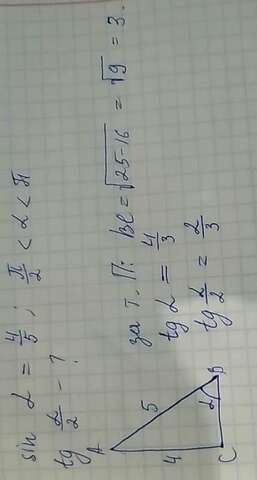 sin α = 4/5 ; π/2 < α < π
tg α/2 - ?
A
5
4
α
C
B
за т. П: BC = √25-16 = √9 = 3.
tg α = 4/3
tg α/2 = 2/3